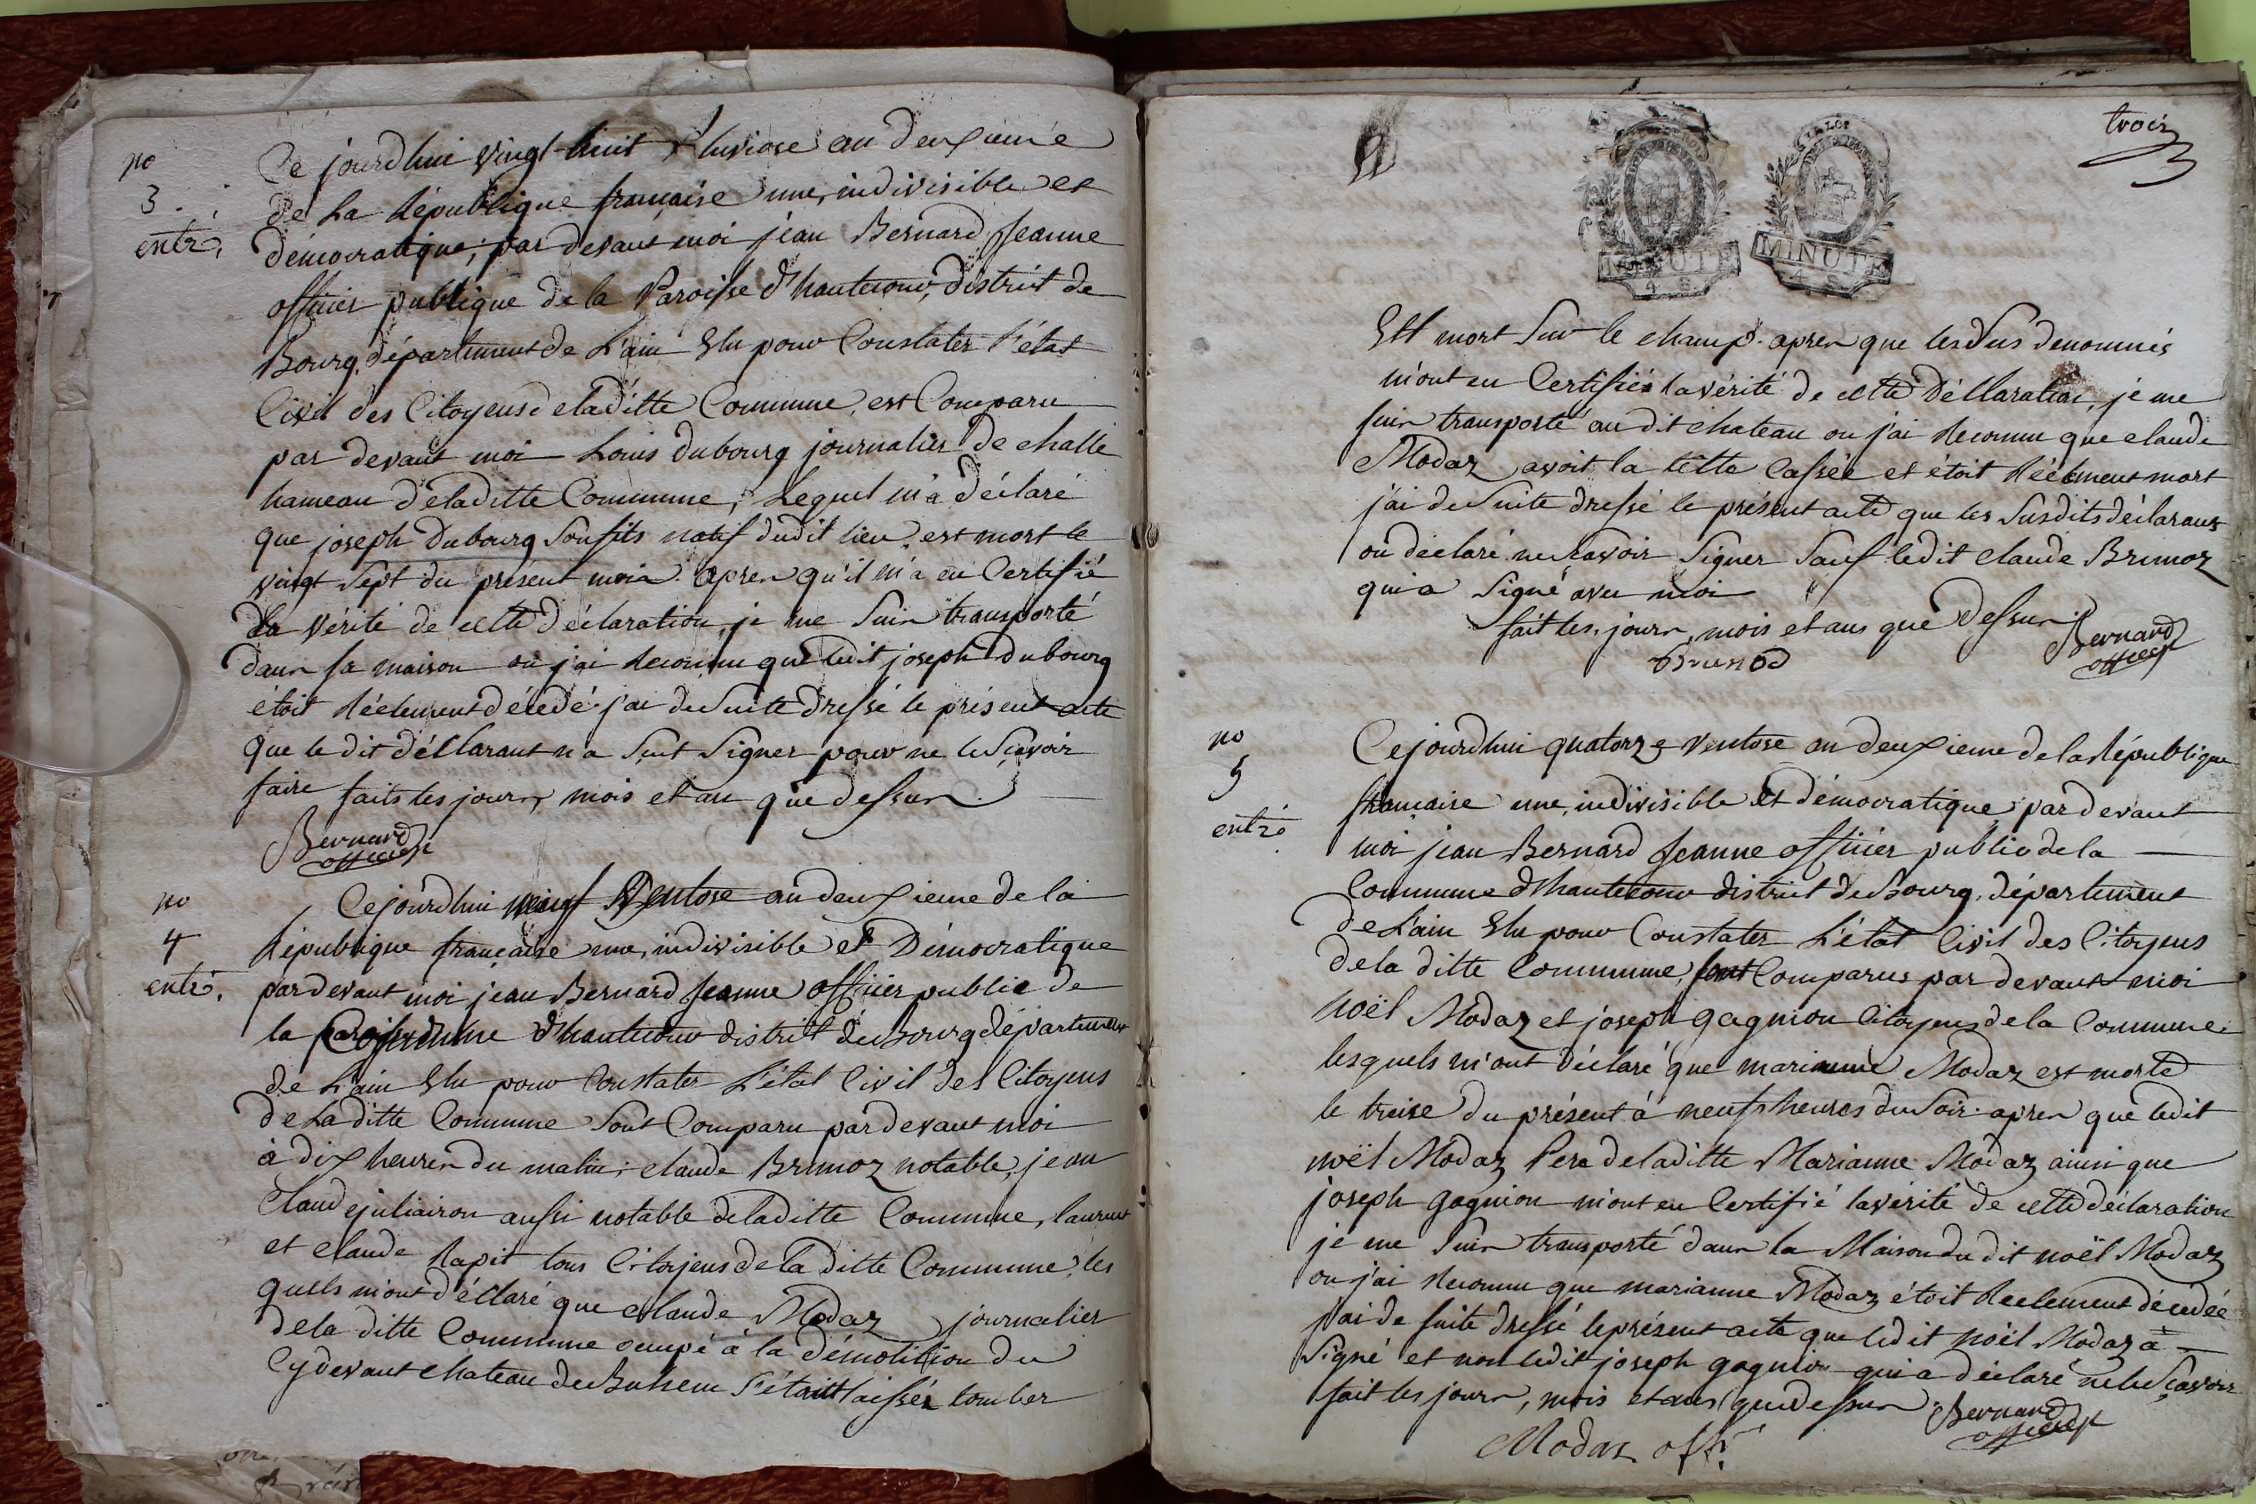 no
3.
entré.
Ce jourdhui vingt-huit pluviose an deuxieme
de La République française une, indivisible et
démocratique, par devant moi jean Bernard Jeanne
officier publique de la Paroisse d'hautecour, district de
Bourg, département de L'ain Elu pour Constater L'état
Civil des Citoyens deladitte Commune, est Comparu
par devant moi Louis dubourg journalier de challe
hameau deladitte Commune, Lequel m'a déclaré
que joseph Dubourg Son fils natif dudit lieu est mort le
vingt Sept du présent mois. apres qu'il m'a eu Certifié
La vérité de cette déclaration, je me Suis transporté
dans sa maison ou j'ai Reconnu que ledit joseph Dubourg
étoit Réelement décedé. j'ai de Suite dressé le présent acte
que le dit déclarant n'a Sçut Signer pour ne le Sçavoir
faire faits les jours, mois et an que dessus.
Bernard
officier
no
4
entré.
Cejourdhui Ventose an deuxieme de la
République française une, indivisible et Démocratique
pardevant moi jean Bernard Jeanne officier public de
la Commune d'hautecour district de Bourg département
de L'ain Elu pour Constater L'état Civil des Citoyens
de La ditte Commune Sont Comparu pardevant moi
à dix heures du matin, claude Brunoz notable, jean
Claude juliairon aussi notable deladitte Commune, laurent
et claude Rapit tous Citoyens de la ditte Commune, les
quels m'ont déclaré que claude Modaz journalier
dela ditte Commune ocupé à la démolition du
Cydevant chateau de S'étant laissé tomber
trois
MINUTE
4 S.
MINUTE
4 S.
Est mort Sur le champ. apres que lesdus denommés
m'ont eu Certifiés la vérité de cette Déclaration, je me
suis transporté au dit chateau ou j'ai Reconnu que claude
Modaz avoit la tette Cassée et étoit Réelment mort
j'ai de Suite dressé le présent acte que les Susdits déclarans
on déclaré ne Savoir Signer Sauf ledit claude Brunoz
qui a Signé avec moi
fait les jours, mois et ans que Dessus
Bernard
officier
brunod
no
5
entré
Cejourdhui quatorze ventose an deuxieme dela République
française une, indivisible et démocratique pardevant
moi jean Bernard Jeanne officier public de la
Commune d'hautecour district de Bourg, département
de L'ain Elu pour Constater L'état Civil des Citoyens
dela ditte Commune, sont Comparus par devant moi
noël Modaz et joseph gagnion Citoyens de la Commune
lesquels m'ont déclaré que marianne Modaz est morte
le treise du présent à neufs heures du Soir. apres que ledit
noël Modaz Pere deladitte Marianne Modaz ainsi que
joseph gagnion m'ont eu Certifié la vérité de cette déclaration
je me Suis transporté dans la Maison du dit noël Modaz
ou j'ai Reconnu que marianne Modaz étoit Reelement décedée
j'ai de suite dressé le présent acte que ledit noël Modaz à
Signé et non ledit joseph gagnion qui a déclaré ne le Sçavoir
fait les jours, mois et ans que dessus.
Bernard
officier
Modas off.